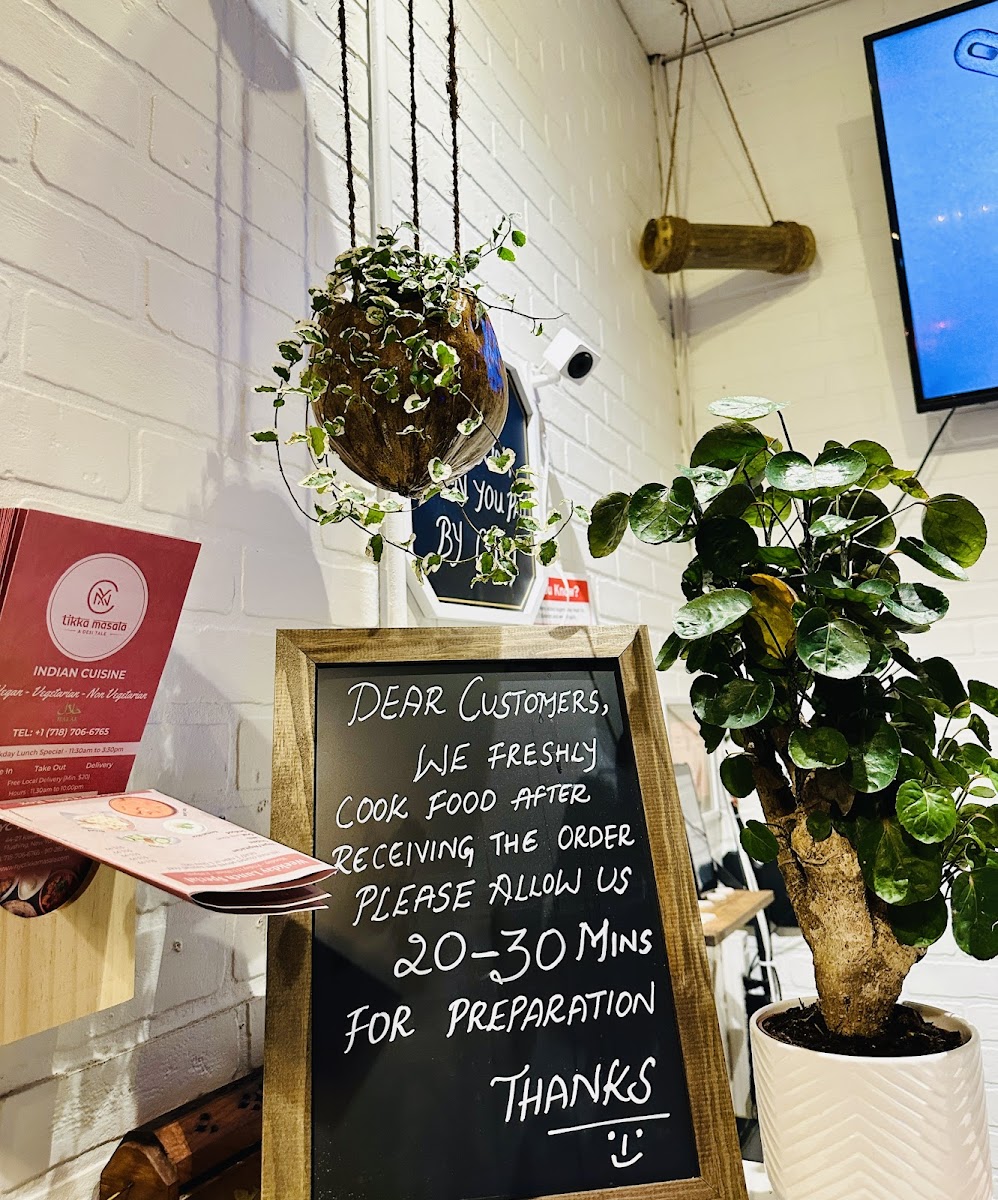 tikka masala
A DESI TALE
INDIAN CUISINE
Vegan - Vegetarian - Non Vegetarian
حلال
HALAL
TEL: +1 (718) 706-6765
kday Lunch Special - 11:30am to 3:30pm
e In Take Out Delivery
Free Local Delivery (Min. $20)
Hours : 11:30am to 10:00pm
Weekday Lunch Special
YOU
BY
u Know?
DEAR CUSTOMERS,
WE FRESHLY
COOK FOOD AFTER
RECEIVING THE ORDER
PLEASE ALLOW US
20-30 MINS
FOR PREPARATION
THANKS